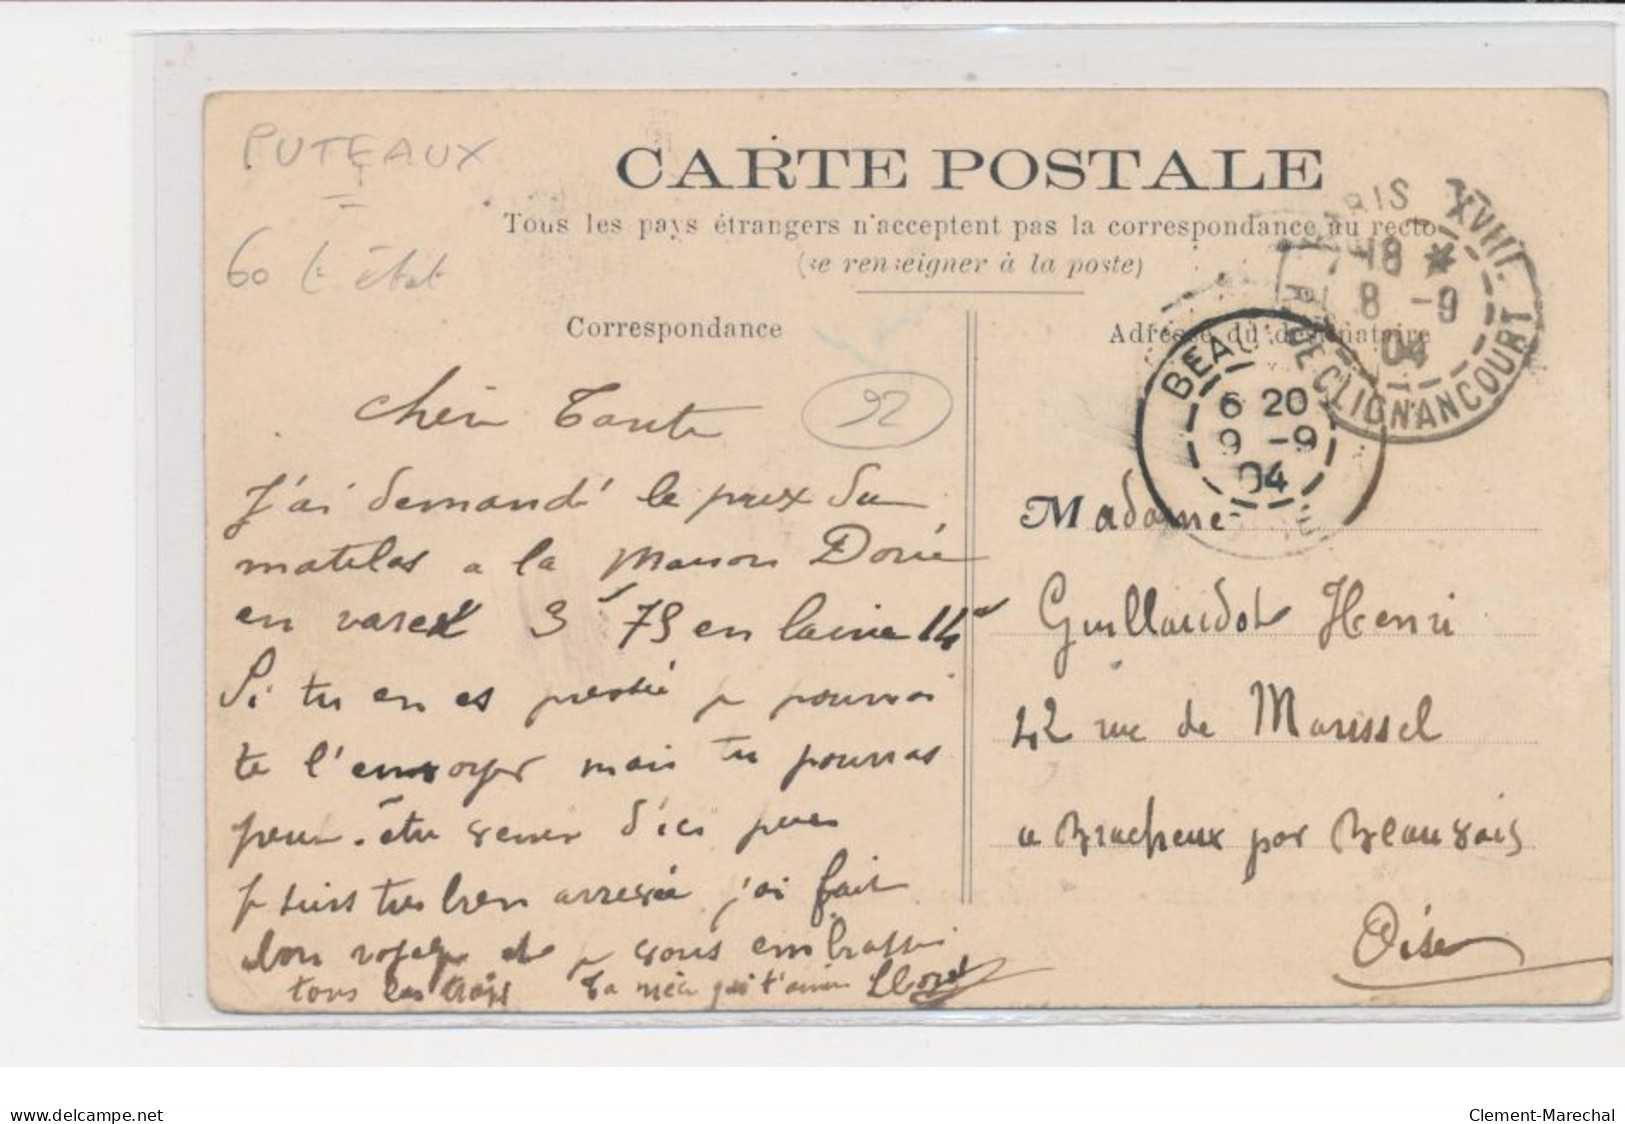 PUTEAUX
60 € état
CARTE POSTALE
Tous les pays étrangers n'acceptent pas la correspondance au recto
(se renseigner à la poste)
Correspondance
92
Chère Tante
J'ai demandé le prix du
matelas a la Maison Dorée
en varech 3f 75 en laine 14f
Si tu en es pressée je pourrai
te l'envoyer mais tu pourras
peut-être venir d'ici peu
je suis très bien arrivée j'ai fait
bon voyage et je vous embrasse
tous les trois Ta nièce qui t'aime
PARIS XVIII.
18 *
8 -9
04
R. DE CLIGNANCOURT
Adresse du destinataire
BEAU
6 20
9 -9
04
Madame
Guillaudot Henri
42 rue de Marissel
a Bracheux par Beauvais
Oise
www.delcampe.net
Clement-Marechal